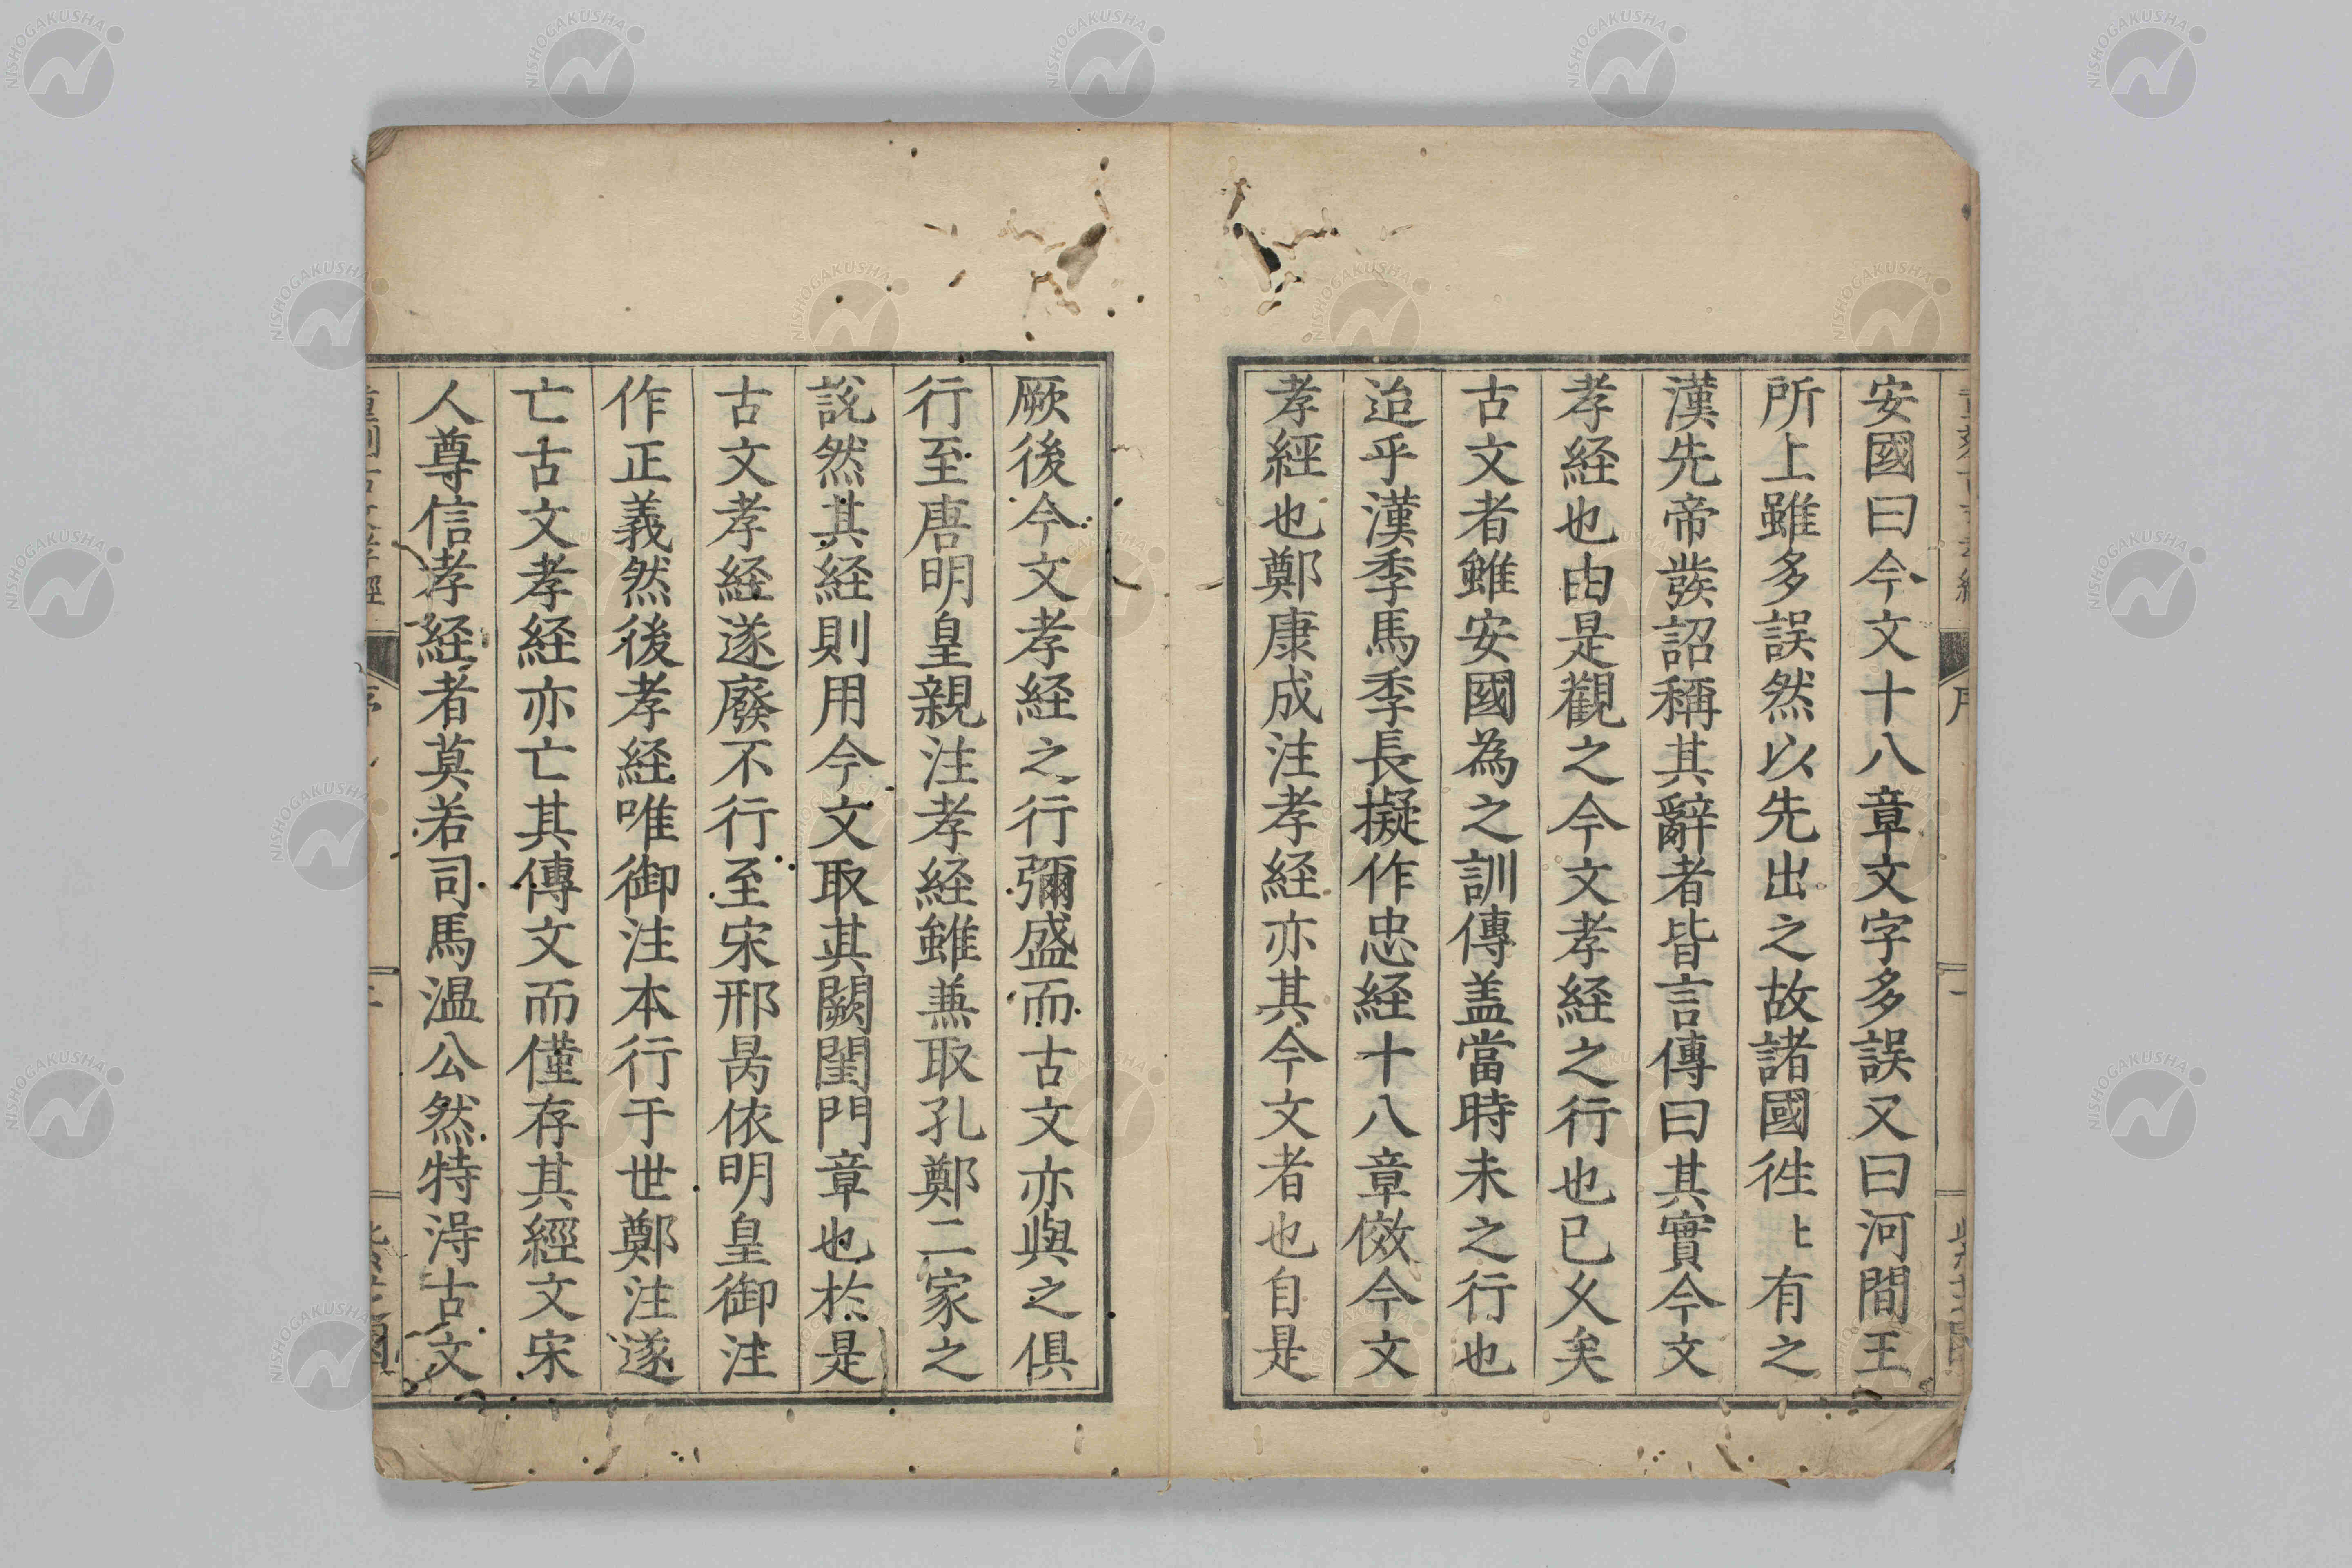 安國曰今文十八章文字多誤又曰河間王
所上雖多誤然以先出之故諸國徃〻有之
漢先帝發詔稱其辭者皆言傳曰其實今文
孝経也由是觀之今文孝経之行也已久矣
古文者雖安國為之訓傳盖當時未之行也
迨乎漢季馬季長擬作忠経十八章傚今文
孝經也鄭康成注孝経亦其今文者也自是
厥後今文孝経之行彌盛而古文亦與之俱
行至唐明皇親注孝経雖兼取孔鄭二家之
說然其経則用今文取其闕閨門章也於是
古文孝経遂廢不行至宋邢昺依明皇御注
作正義然後孝経唯御注本行于世鄭注遂
亡古文孝経亦亡其傳文而僅存其經文宋
人尊信孝経者莫若司馬温公然特淂古文
NISHOGAKUSHA